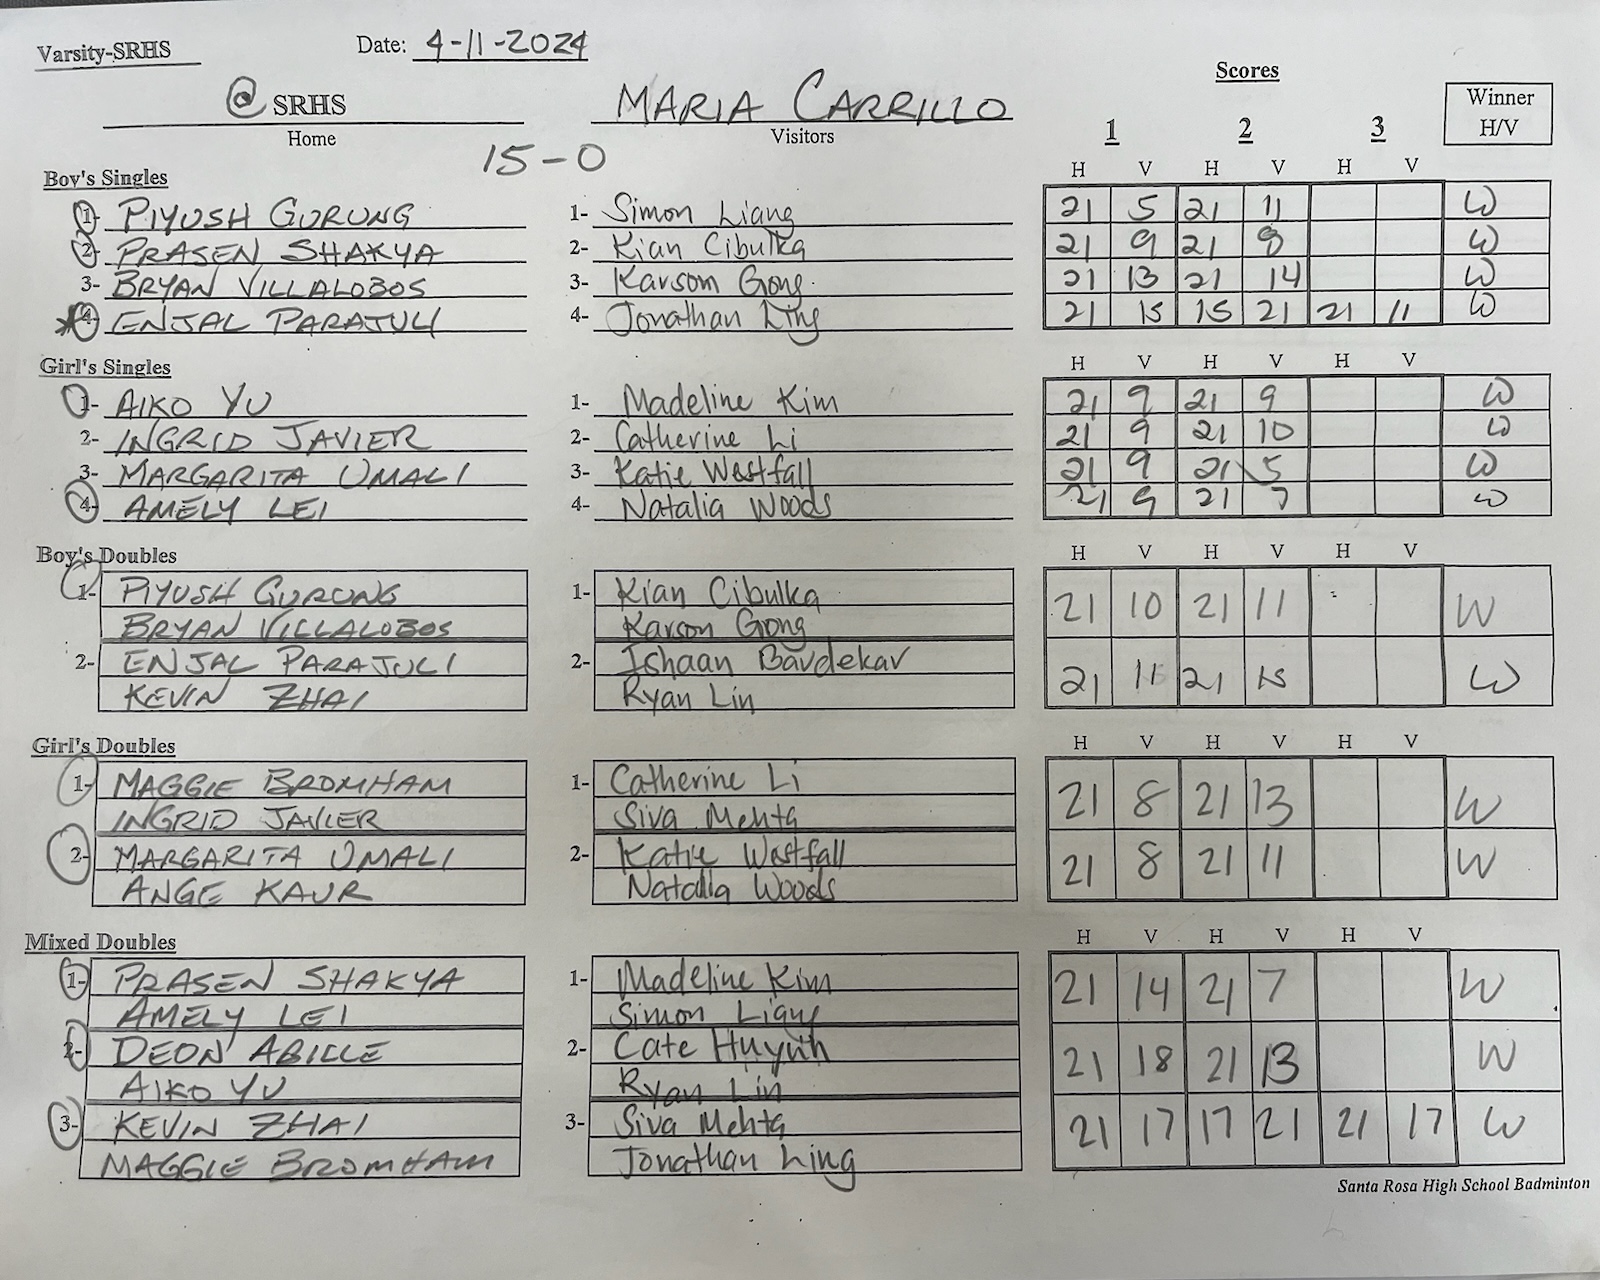 Varsity-SRHS Date: 4-11-2024
Scores
@ SRHS MARIA CARRILLO Winner H/V
Home Visitors 1 2 3
15-0
Boy's Singles H V H V H V
1- PIYUSH GURUNG 1- Simon Liang 21 5 21 11 W
2- PRASEN SHAKYA 2- Kian Cibulka 21 9 21 8 W
3- BRYAN VILLALOBOS 3- Karson Gong 21 13 21 14 W
*4- ENJAL PARAJULI 4- Jonathan Ling 21 15 15 21 21 11 W
Girl's Singles H V H V H V
1- AIKO YU 1- Madeline Kim 21 9 21 9 W
2- INGRID JAVIER 2- Catherine Li 21 9 21 10 W
3- MARGARITA UMALI 3- Katie Westfall 21 9 21 5 W
4- AMELY LEI 4- Natalia Woods 21 9 21 7 W
Boy's Doubles H V H V H V
1- PIYUSH GURUNG 1- Kian Cibulka 21 10 21 11 W
BRYAN VILLALOBOS Karson Gong
2- ENJAL PARAJULI 2- Ishaan Bavdekar 21 11 21 15 W
KEVIN ZHAI Ryan Lin
Girl's Doubles H V H V H V
1- MAGGIE BROMHAM 1- Catherine Li 21 8 21 13 W
INGRID JAVIER Siva Mehta
2- MARGARITA UMALI 2- Katie Westfall 21 8 21 11 W
ANGE KAUR Natalia Woods
Mixed Doubles H V H V H V
1- PRASEN SHAKYA 1- Madeline Kim 21 14 21 7 W
AMELY LEI Simon Liang
2- DEON ABILLE 2- Cate Huynh 21 18 21 13 W
AIKO YU Ryan Lin
3- KEVIN ZHAI 3- Siva Mehta 21 17 17 21 21 17 W
MAGGIE BROMHAM Jonathan Ling
Santa Rosa High School Badminton